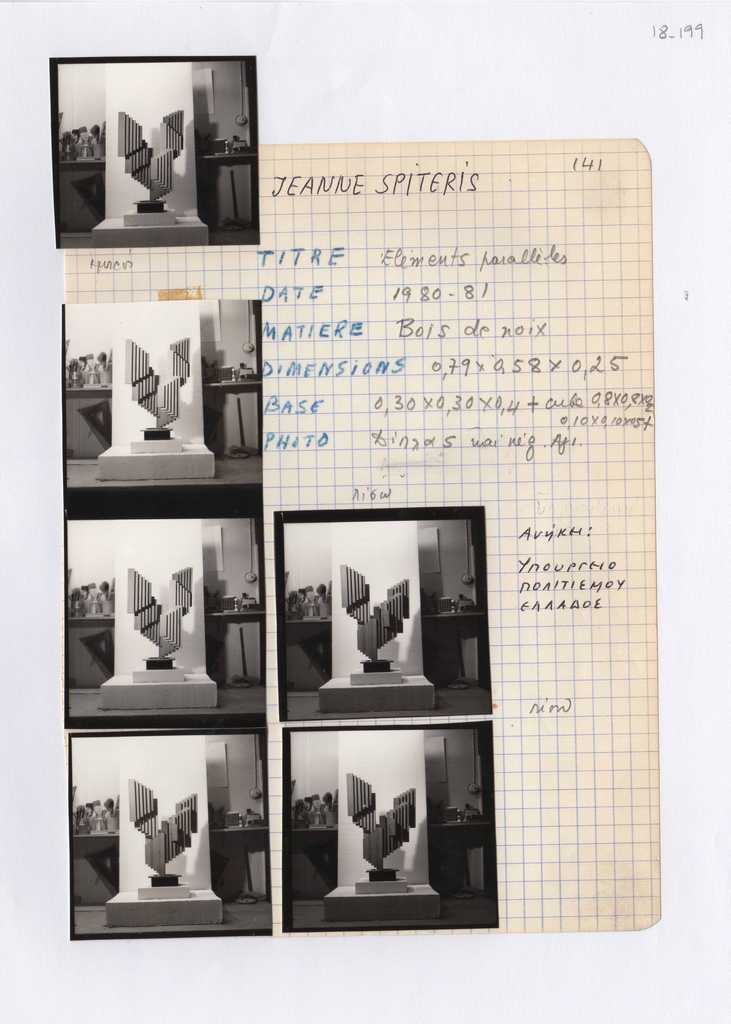 18-199
141
JEANNE SPITERIS
TITRE Eléments parallèles
DATE 1980-81
MATIERE Bois de noix
DIMENSIONS 0,79 x 0,58 x 0,25
BASE 0,30 x 0,30 x 0,4 + cube 0,8 x 0,8 x
0,10 x 0,10 x
PHOTO και νεγ.
πίσω
Ανήκει:
ΥΠΟΥΡΓΕΙΟ
ΠΟΛΙΤΙΣΜΟΥ
ΕΛΛΑΔΟΣ
πίσω